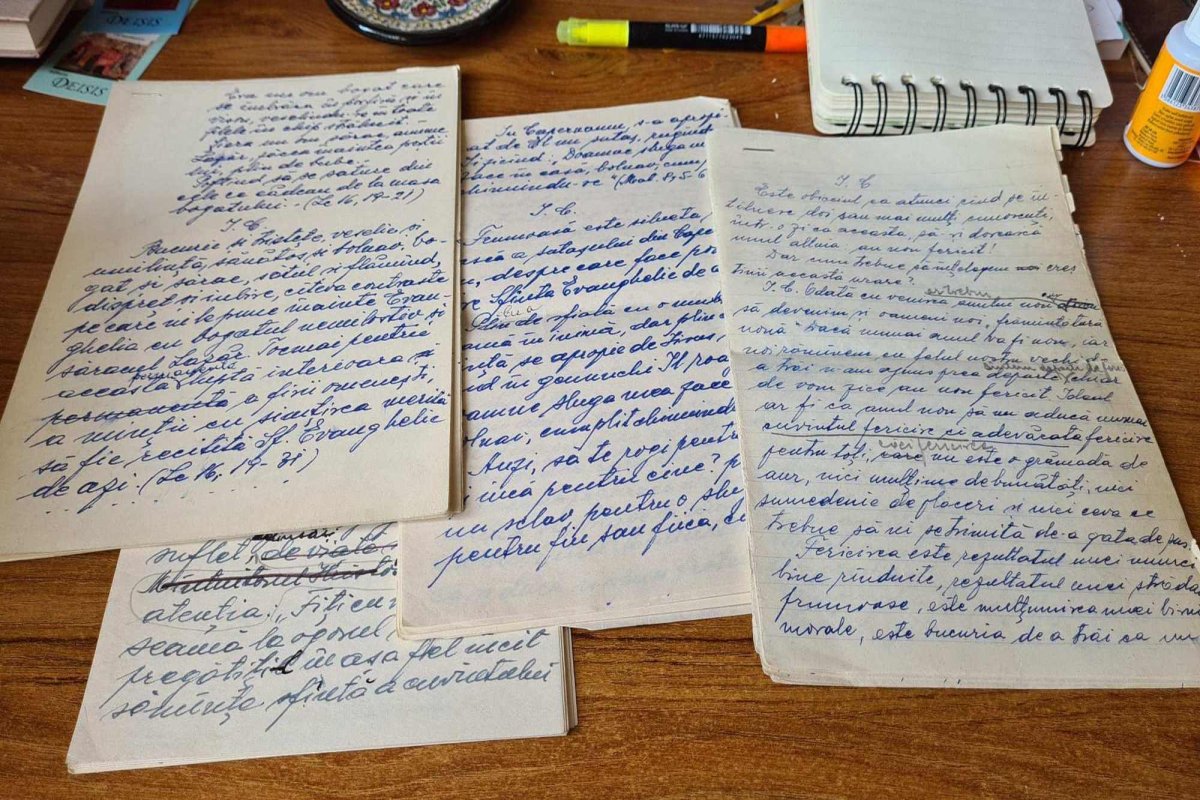 DEISIS
DEISIS
Era un om bogat care
se îmbrăca în porfiră și în
vison, veselindu-se în toate
zilele în chip strălucit.
Iar un sărac, anume
Lazăr, zăcea înaintea porții
lui, plin de bube.
Poftind să se sature din
cele ce cădeau de la masa
bogatului. (Lc 16, 19-21)
I. C.
Bucurie și tristețe, veselie și
umilință, sănătos și bolnav, bo-
gat și sărac, sătul și flămînd,
dispreț și iubire, cîteva contraste
pe care ni le pune înainte Evan-
ghelia cu bogatul nemilostiv și
săracul Lazăr. Tocmai pentru
această luptă interioară și
permanentă
permanentă a ființii omenești,
a minții cu simțirea merită
să fie recitită Sf. Evanghelie
de azi. (Lc 16, 19-31)
suflet, de viață
Mîntuitorul Hristos
atenția: „Fiți cu
seamă la ogorul
pregătiți în așa fel încît
sămînța sfîntă a cuvîntului
În Capernaum s-a apropi
at de El un sutaș, rugînd
și zicînd: Doamne sluga m
zace în casă, bolnav, cum
chinuindu-se (Mat 8, 5-6
I. C.
Frumoasă este
a sutașului din Cape
despre care face po
Sfînta Evanghelie de a
Plin de
în inimă, dar plin c
se apropie de Iisus,
în genunchi Îl roa
Doamne sluga mea zace
bolnav, cumplit chinuindu
Auzi, să te rogi pentru
încă pentru cine?
un sclav, pentru o slu
pentru fiu sau fiică, c
I. C.
Este obiceiul ca atunci cînd se în
tîlnesc doi sau mai mulți cunoscuți,
într-o zi ca aceasta, să-și dorească
unul altuia „an nou fericit!
Dar cum trebuie să înțelegem noi creș
tinii această urare?
ar trebui
I. C. Odată cu venirea anului nou
să devenim și oameni noi, frămîntătură
nouă. Dacă numai anul va fi nou, iar
noi rămînem cu felul nostru vechi de
a trăi n-am ajuns prea departe, chiar
de vom zice an nou fericit. Idealul
ar fi ca anul nou să nu aducă numai
cuvîntul fericire ci adevărata fericire
pentru toți, care nu este o grămadă de
aur, nici mulțime de bunătăți, nici
sumedenie de plăceri și nici ceva ce
trebuie să ni se trimită de-a gata de sus
Fericirea este rezultatul unei munci
bine rînduite, rezultatul unei străda
frumoase, este mulțumirea unei bine
morale, este bucuria de a trăi ca un